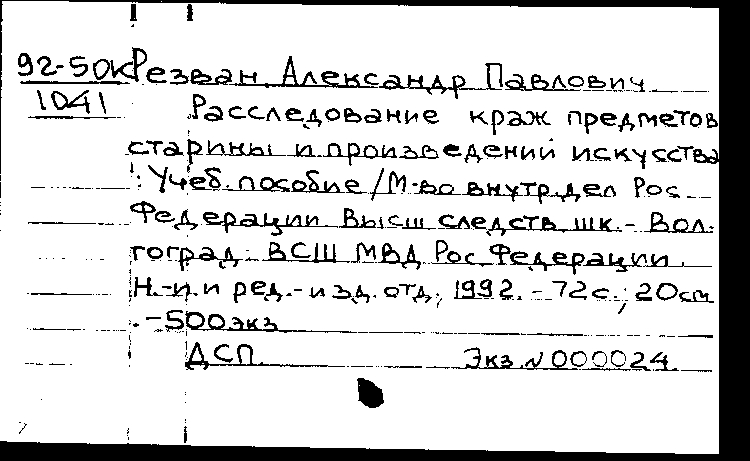 92-50к Резван, Александр Павлович
1041 Расследование краж предметов
старины и произведений искусства
: Учеб. пособие / М-во внутр. дел Рос.
Федерации Высш следств. шк. - Вол-
гоград: ВСШ МВД Рос. Федерации.
Н.-и. и ред.-изд. отд., 1992. - 72 с.; 20 см
. - 500 экз
ДСП. Экз. N 000024